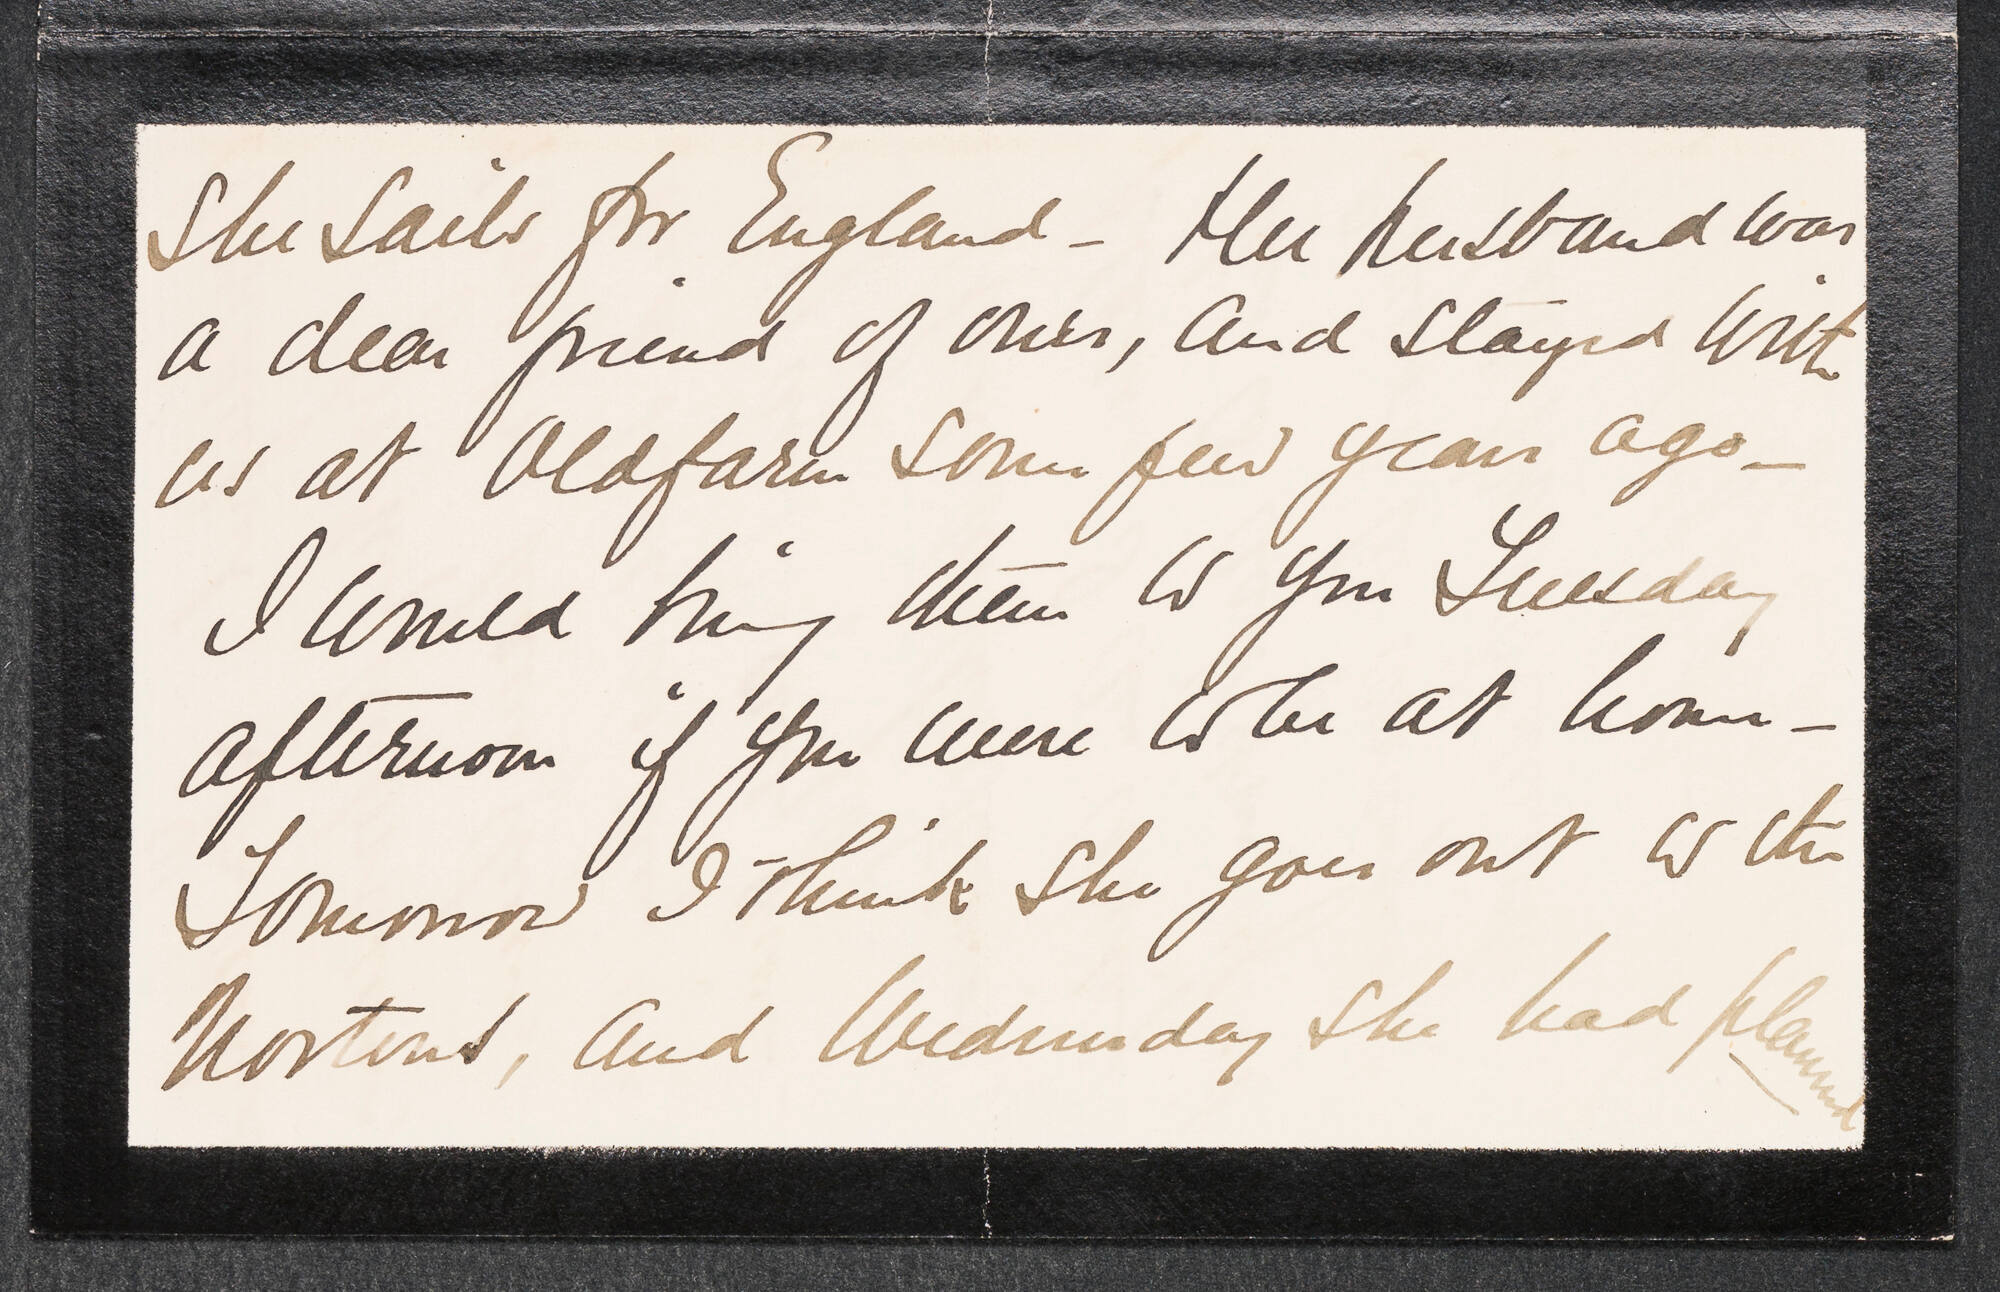 She sails for England - Her husband was
a dear friend of ours, and stayed with
us at Oldfarm some few years ago -
I would bring them to you Tuesday
afternoon if you were to be at home -
Tomorrow I think she goes out to the
Nortons, and Wednesday she had planned